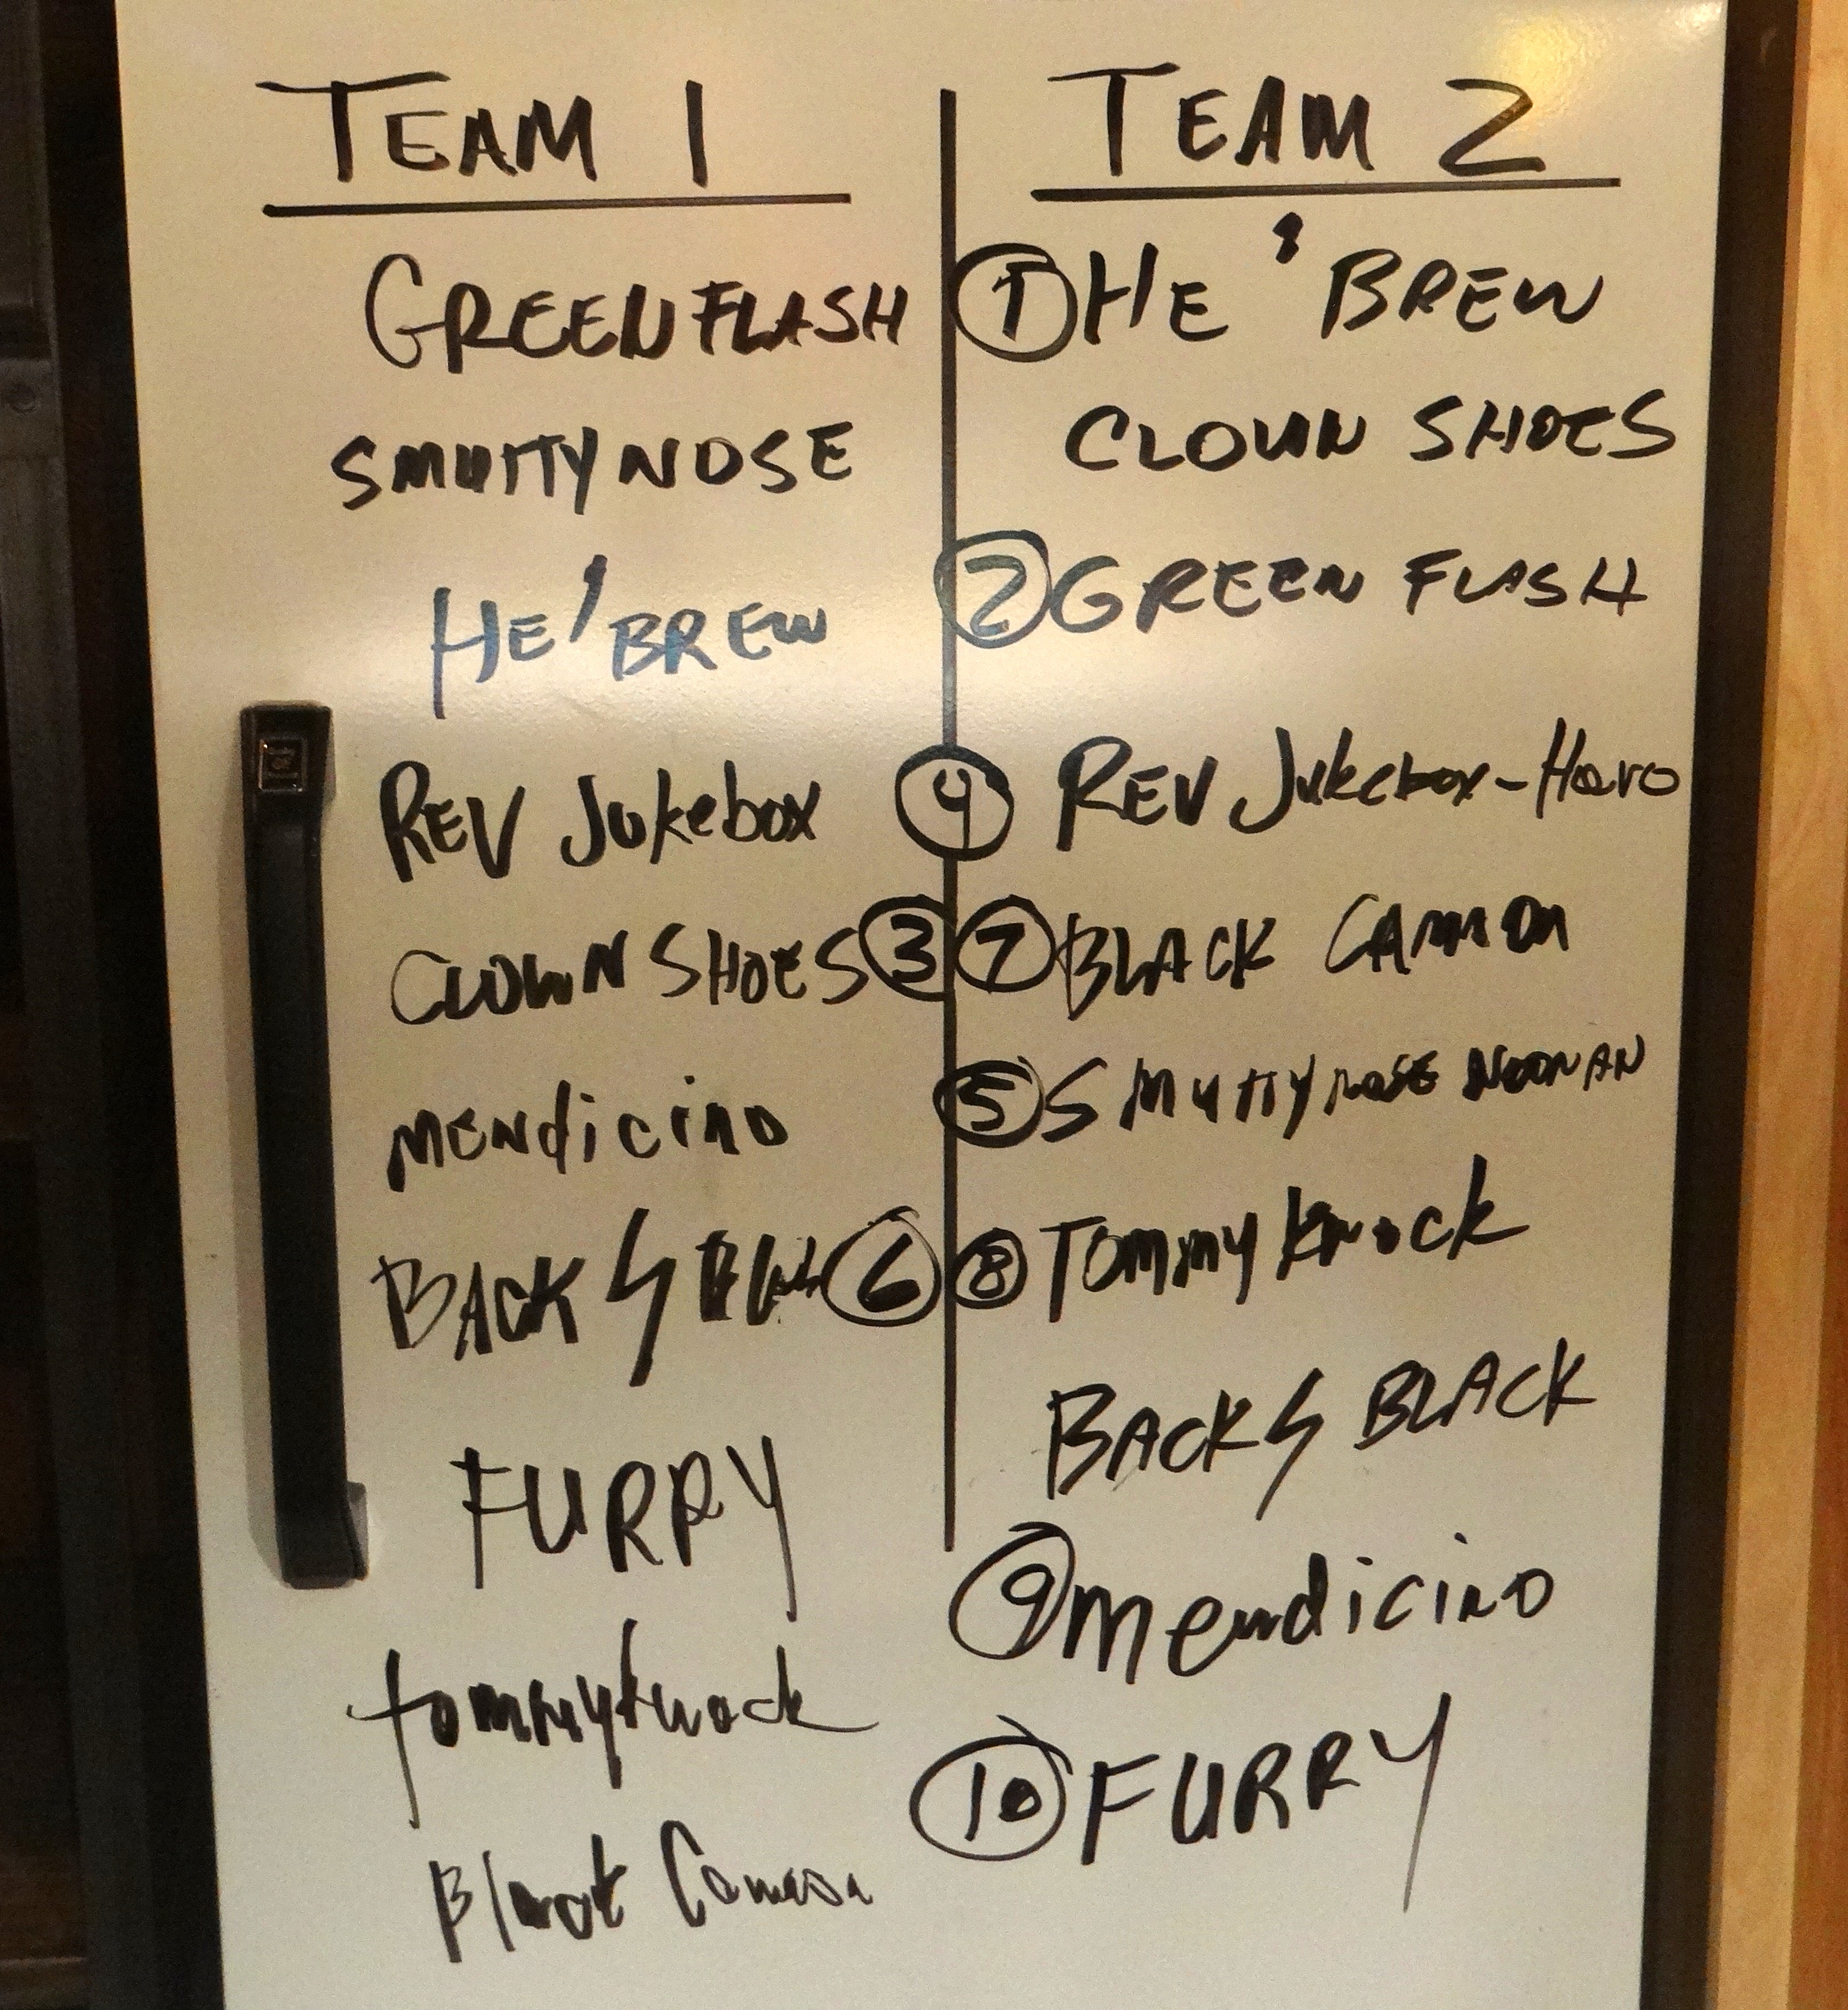 TEAM 1
GREENFLASH
SMUTTYNOSE
HE'BREW
REV Jukebox
CLOWN SHOES 3
MENdicino
BACK 4 6
FURRY
tommyknock
TEAM 2
1 HE'BREW
CLOWN SHOES
2 GREEN FLASH
4 REV Jukebox-Hero
7 BLACK CANNON
5 SMUTTYNOSE NOONAN
8 Tommyknock
BACK 4 BLACK
9 Mendicino
10 FURRY